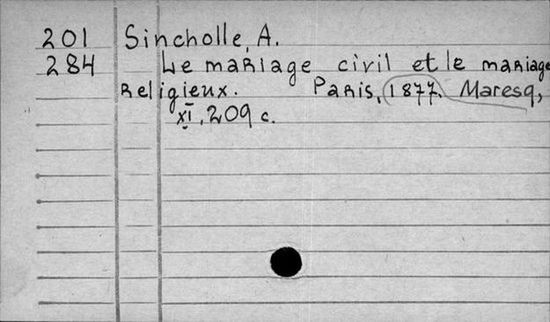 201 Sincholle, A.
284 Le mariage civil et le mariage
religieux. Paris, 1877. Maresq,
XI, 209 c.